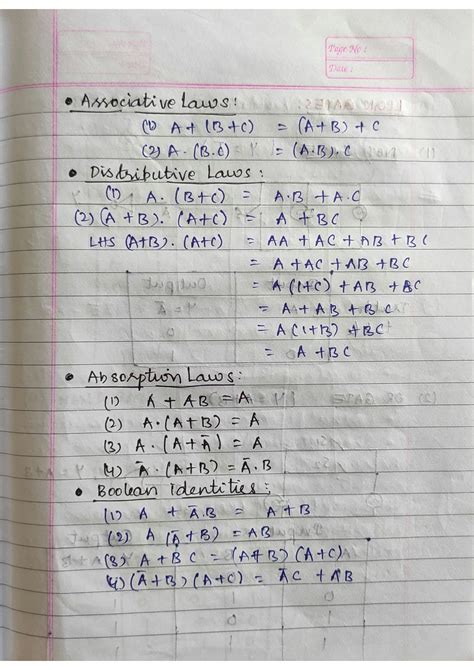 Page No :
Date :
• Associative Laws :
(1) A + (B+C) = (A+B) + C
(2) A . (B.C) = (A.B). C
• Distributive Laws :
(1) A. (B+C) = A.B + A.C
(2) (A + B). (A+C) = A + BC
LHS (A+B). (A+C) = AA + AC + AB + BC
= A + AC + AB + BC
= A (1+C) + AB + BC
= A + AB + BC
= A (1+B) + BC
= A + BC
• Absorption Laws :
(1) A + AB = A
(2) A. (A+B) = A
(3) A. (A+Ā) = A
(4) Ā. (A+B) = Ā.B
• Boolean Identities ;
(1) A + Ā.B = A+B
(2) A (Ā+B) = AB
(3) A + BC = (A+B) (A+C)
(4) (Ā+B) (A+C) = ĀC + AB